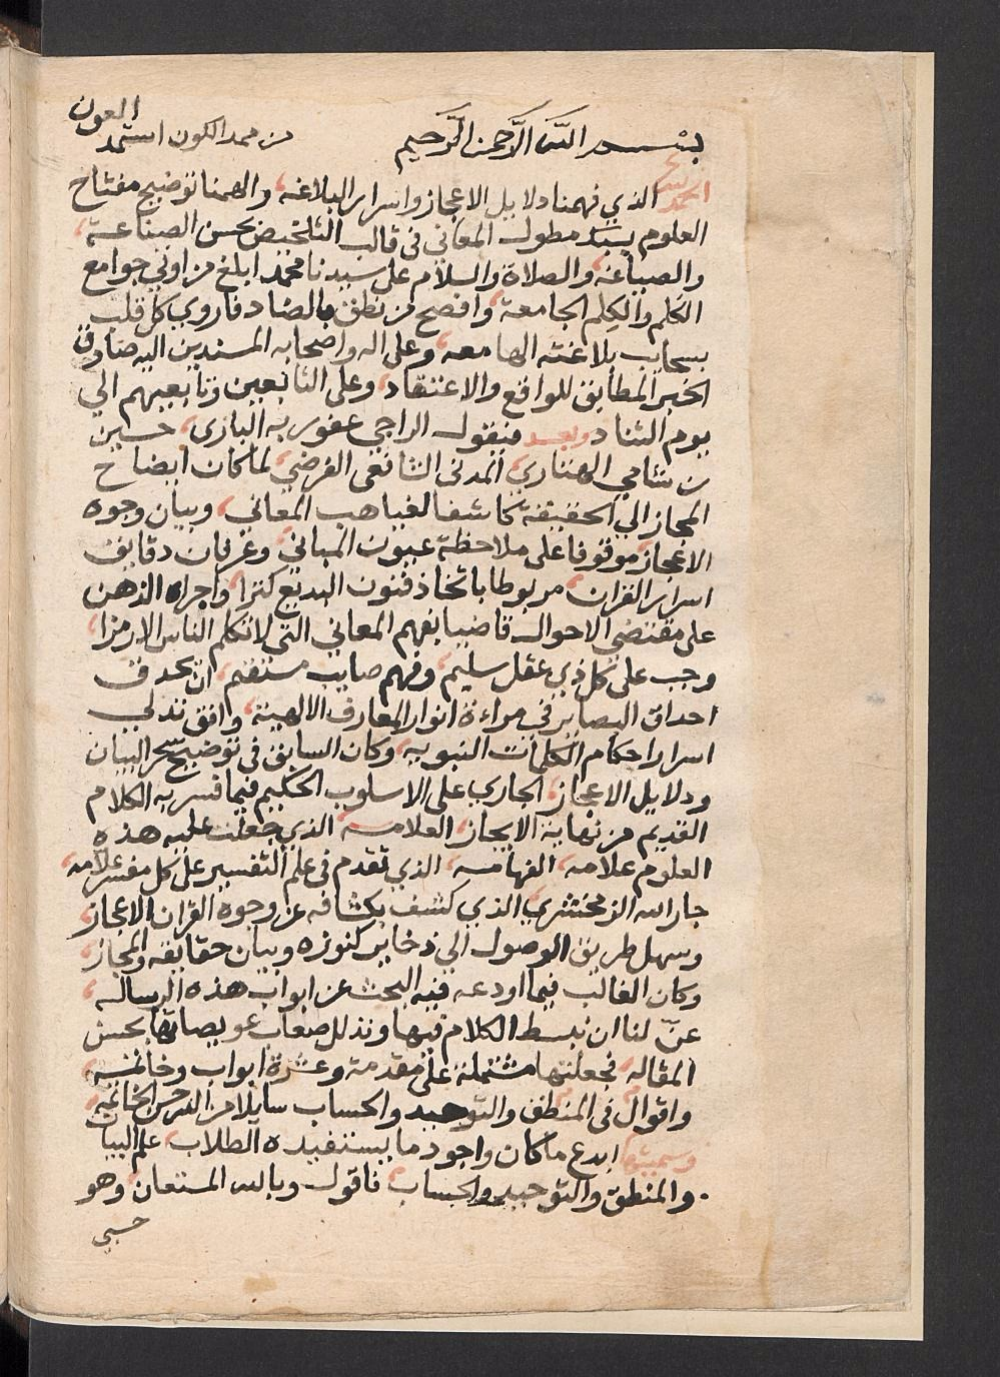 بسم الله الرحمن الرحيم من ممد الكون استمد العون
الحمد لله الذي فهمنا دلايل الاعجاز واسرار البلاغة، والهمنا توضيح مفتاح
العلوم بسبك مطول المعاني في قالب التلخيص بحسن الصناعة،
والصياغة، والصلاة والسلام على سيدنا محمد ابلغ من اوتي جوامع
الكلم والكلم الجامعة، وافصح من نطق بالضاد فاروي كل قلب
بسحايب بلاغته الهامعه، وعلى اله واصحابه المسندين اليه صادق
الخبر المطابق للواقع والاعتقاد، وعلى التابعين وتابعيهم الي
يوم التناد وبعد فيقول الراجي عفو ربه الباري، حسين
بن شامي الهتاري، المدني الشافعي الفرضي، لما كان ايضاح
المجاز الي الحقيقة كاشفا لغياهب المعاني، وبيان وجوه
الاعجاز موقوفا على ملاحظة عيون المباني، وعرفان دقايق
اسرار القران، مربوطا باتخاذ فنون البديع كنزا، واجراء الذهن
على مقتضي الاحوال قاضيا بفهم المعاني التي لا تكلم الناس الا رمزا،
وجب على كل ذي عقل سليم، وفهم صايب مستقيم، ان يحدق
احداق البصاير في مراءة انوار المعارف الالهية، وافق تدلي
اسرار احكام الكلمات النبويه، وكان السابق في توضيح سحر البيان
ودلايل الاعجاز، الجاري على الاسلوب الحكيم فيما فسر به الكلام
القديم من نهاية الايجاز، العلامه، الذي جعلت عليه هذه
العلوم علامه، الفهامه، الذي تقدم في علم التفسير على كل مفسر علامه،
جار الله الزمخشري، الذي كشف بكشافه عن وجوه القران الاعجاز،
وسهل طريق الوصول الي ذخاير كنوزه وبيان حقايقه والمجاز،
وكان الغالب فيما اودعه فيه البحث عن ابواب هذه الرساله،
عنّ لنا ان نبسط الكلام فيها ونذلل صعاب عويصاتها بحسن
المقاله، فجعلتها مشتملة على مقدمة وعشرة ابواب وخاتمه،
واقوال في المنطق والتوحيد والحساب سايلا من الله حسن الخاتمه،
وسميتها ابدع ما كان واجود ما يستفيده الطلاب، علم البيان
والمنطق والتوحيد والحساب، فاقول وبالله المستعان وهو
حسبي